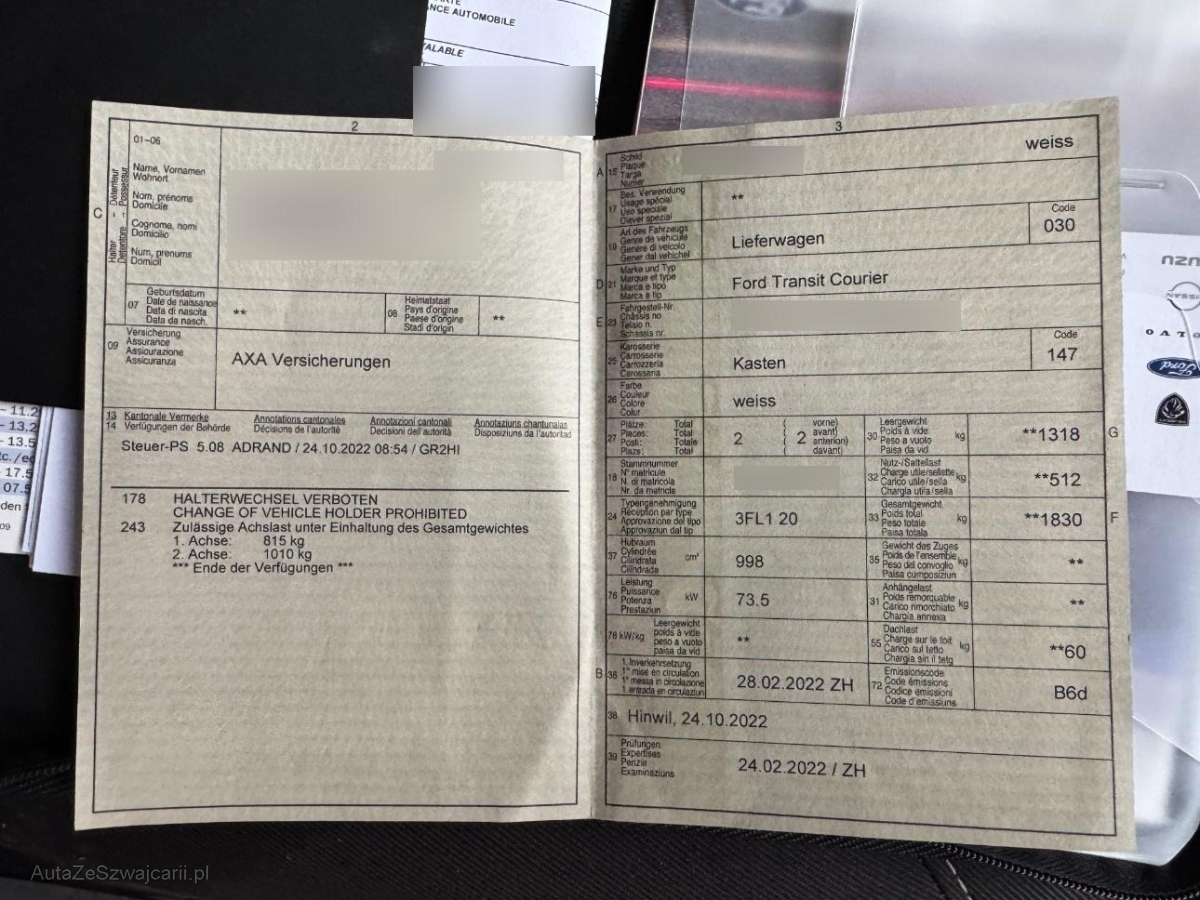 NCE AUTOMOBILE
VALABLE
2
01–06
Name, Vornamen
Wohnort
Nom, prénoms
Domicile
Cognome, nomi
Domicilio
Num, prenums
Domicil
C
Halter
Détenteur
Detentore
Possessur
07
Geburtsdatum
Date de naissance
Data di nascita
Data da nasch.
**
08
Heimatstaat
Pays d'origine
Paese d'origine
Stadi d'origin
**
09
Versicherung
Assurance
Assicurazione
Assicuranza
AXA Versicherungen
13 Kantonale Vermerke Annotations cantonales Annotazioni cantonali Annotaziuns chantunalas
14 Verfügungen der Behörde Décisions de l'autorité Decisioni dell'autorità Disposiziuns da l'autoritad
Steuer-PS 5.08 ADRAND / 24.10.2022 08:54 / GR2HI
178 HALTERWECHSEL VERBOTEN
CHANGE OF VEHICLE HOLDER PROHIBITED
243 Zulässige Achslast unter Einhaltung des Gesamtgewichtes
1. Achse: 815 kg
2. Achse: 1010 kg
*** Ende der Verfügungen ***
3
A 15
Schild
Plaque
Targa
Numer
weiss
17
Bes. Verwendung
Usage spécial
Uso speciale
Diever spezial
**
19
Art des Fahrzeugs
Genre de véhicule
Genere di veicolo
Gener dal vehichel
Lieferwagen
Code
030
D 21
Marke und Typ
Marque et type
Marca e tipo
Marca e tip
Ford Transit Courier
E 23
Fahrgestell-Nr.
Châssis no
Telaio n.
Schassis nr.
25
Karosserie
Carrosserie
Carrozzeria
Carossaria
Kasten
Code
147
26
Farbe
Couleur
Colore
Colur
weiss
27
Plätze: Total
Places: Total
Posti: Totale
Plazs: Total
2
( vorne)
( avant)
2 anteriori)
( davant)
30
Leergewicht
Poids à vide
Peso a vuoto
Paisa da vid
kg
**1318
G
18
Stammnummer
N° matricule
N. di matricola
Nr. da matricla
32
Nutz-/Sattellast
Charge utile/sellette
Carico utile/sella
Chargia utila/sella
kg
**512
24
Typengenehmigung
Réception par type
Approvazione del tipo
Approvaziun dal tip
3FL1 20
33
Gesamtgewicht
Poids total
Peso totale
Paisa totala
kg
**1830
F
37
Hubraum
Cylindrée
Cilindrata
Cilindrada
cm³
998
35
Gewicht des Zuges
Poids de l'ensemble
Peso del convoglio
Paisa cumposiziun
kg
**
76
Leistung
Puissance
Potenza
Prestaziun
kW
73.5
31
Anhängelast
Poids remorquable
Carico rimorchiato
Chargia annexa
kg
**
78 kW/kg
Leergewicht
poids à vide
peso a vuoto
paisa da vid
**
55
Dachlast
Charge sur le toit
Carico sul tetto
Chargia sin il tetg
kg
**60
B 36
1. Inverkehrsetzung
1re mise en circulation
1a messa in circolazione
1. entrada en circulaziun
28.02.2022 ZH
72
Emissionscode
Code émissions
Codice emissioni
Code d'emissiuns
B6d
38 Hinwil, 24.10.2022
39
Prüfungen
Expertises
Perizie
Examinaziuns
24.02.2022 / ZH
Ford
AutaZeSzwajcarii.pl